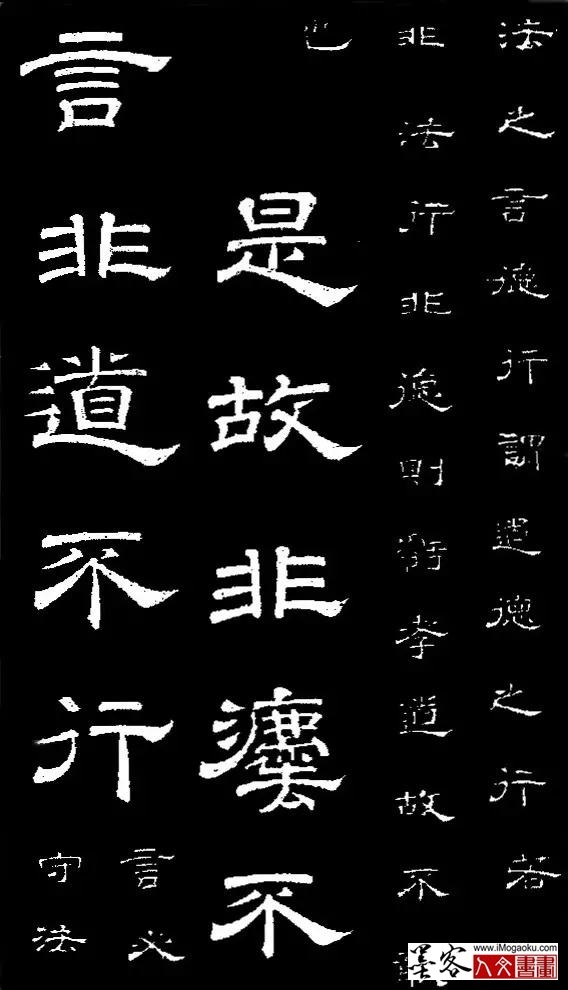 法之言德行謂道德之行若
非法行非德則虧孝道故不
也
是故非灋不
言非道不行
言必
守法
墨客
www.iMogaoku.com
人文書畫